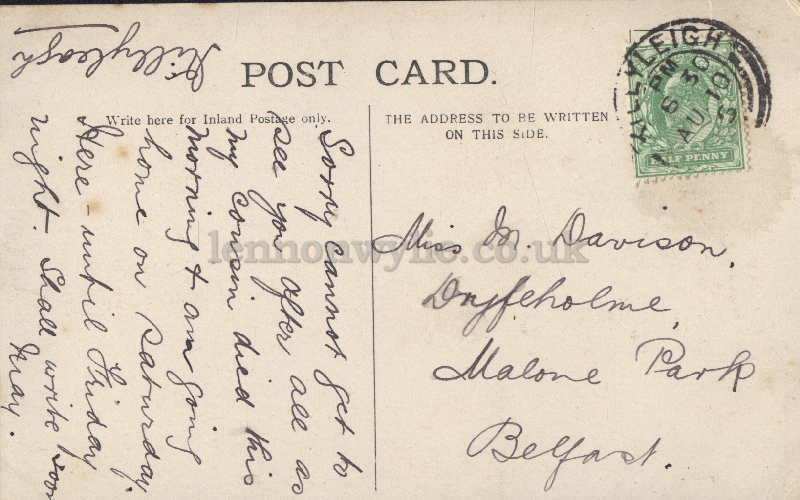 Killyleagh
POST CARD.
Write here for Inland Postage only.
THE ADDRESS TO BE WRITTEN
ON THIS SIDE.
KILLYLEIGH
6 30 PM
AU 10
HALF PENNY
Sorry cannot get to
see you after all as
my cousin died this
morning & am going
home on Saturday.
Here - until Friday
night. Shall write soon
May.
Miss M. Davison,
Malone Park
Belfast.
lennonwylie.co.uk